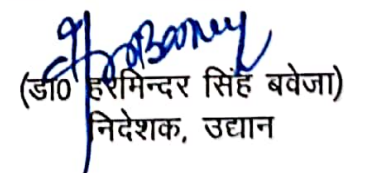 (डा0 हरमिन्दर सिंह बवेजा)
निदेशक, उद्यान